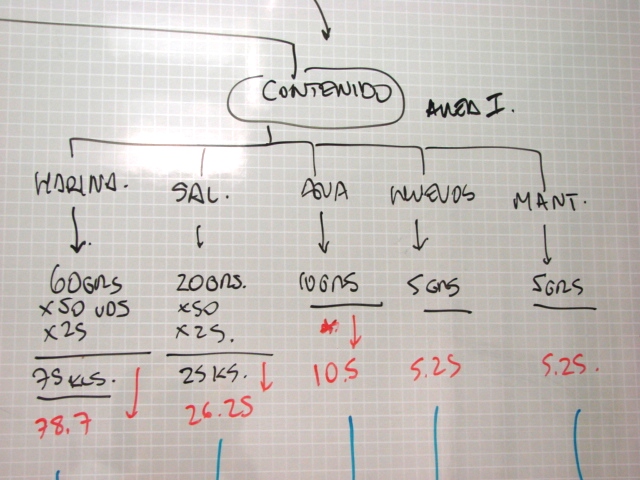 CONTENIDO
AREA I.
HARINA.
SAL.
AGUA
HUEVOS
MANT.
60GRS
x50 UDS
x25
75 KLS.
78.7
20GRS.
x50
x25.
25 KS.
26.25
10GRS
10.5
5GRS
5.25
5GRS
5.25.